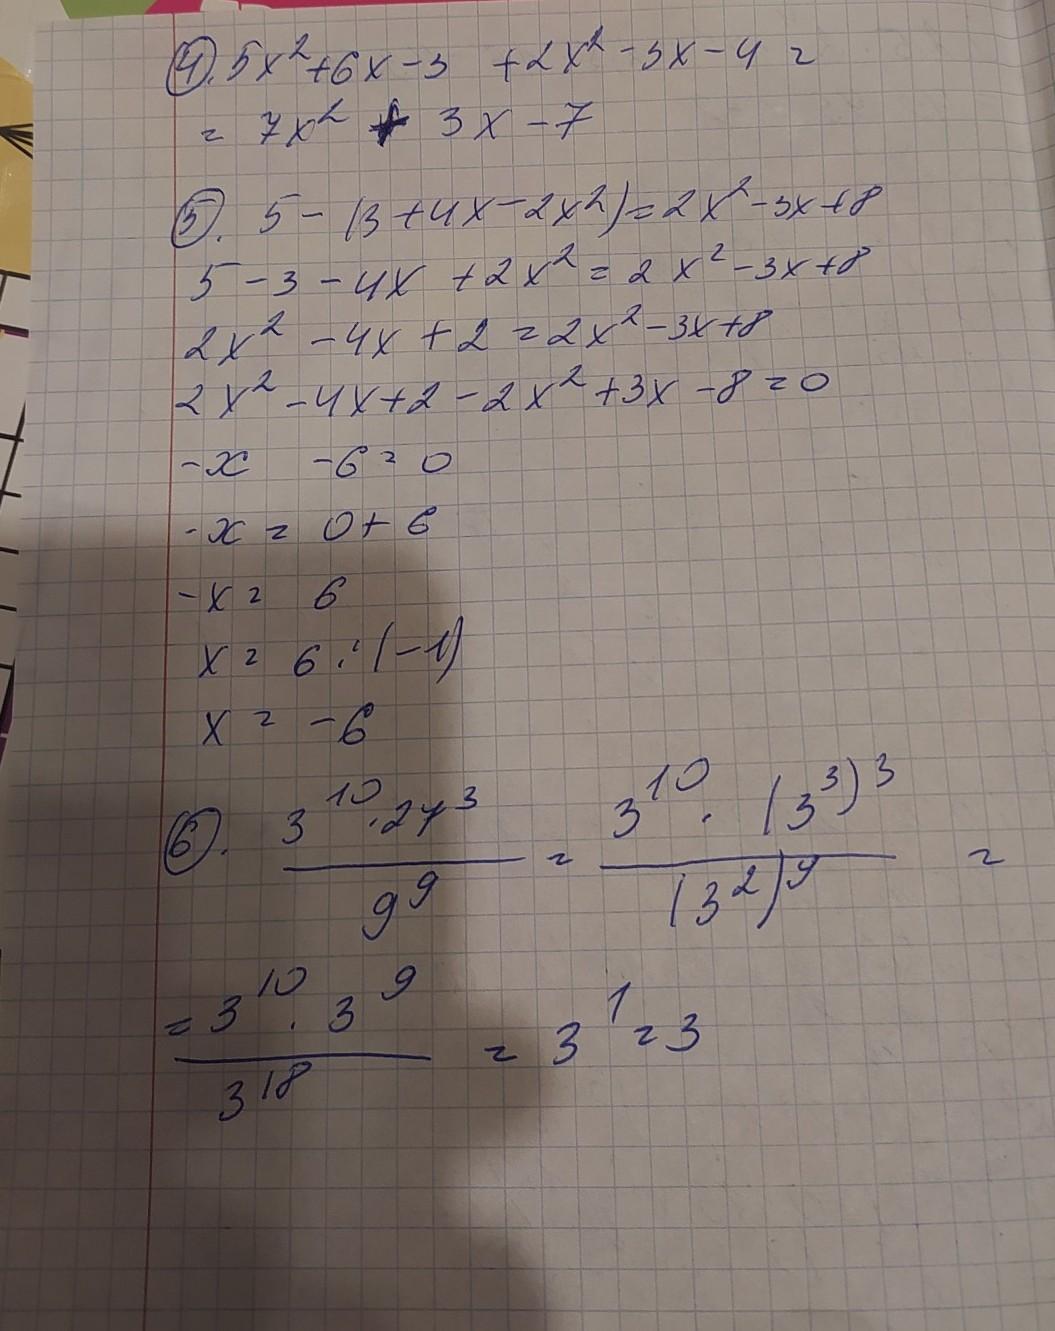 ④. 5x² + 6x - 3 + 2x² - 3x - 4 =
= 7x² + 3x - 7
⑤. 5 - (3 + 4x - 2x²) = 2x² - 3x + 8
5 - 3 - 4x + 2x² = 2x² - 3x + 8
2x² - 4x + 2 = 2x² - 3x + 8
2x² - 4x + 2 - 2x² + 3x - 8 = 0
-x - 6 = 0
-x = 0 + 6
-x = 6
x = 6 : (-1)
x = -6
⑥. (3¹⁰ · 27³) / 9⁹ = (3¹⁰ · (3³)³) / (3²)⁹ =
= (3¹⁰ · 3⁹) / 3¹⁸ = 3¹ = 3